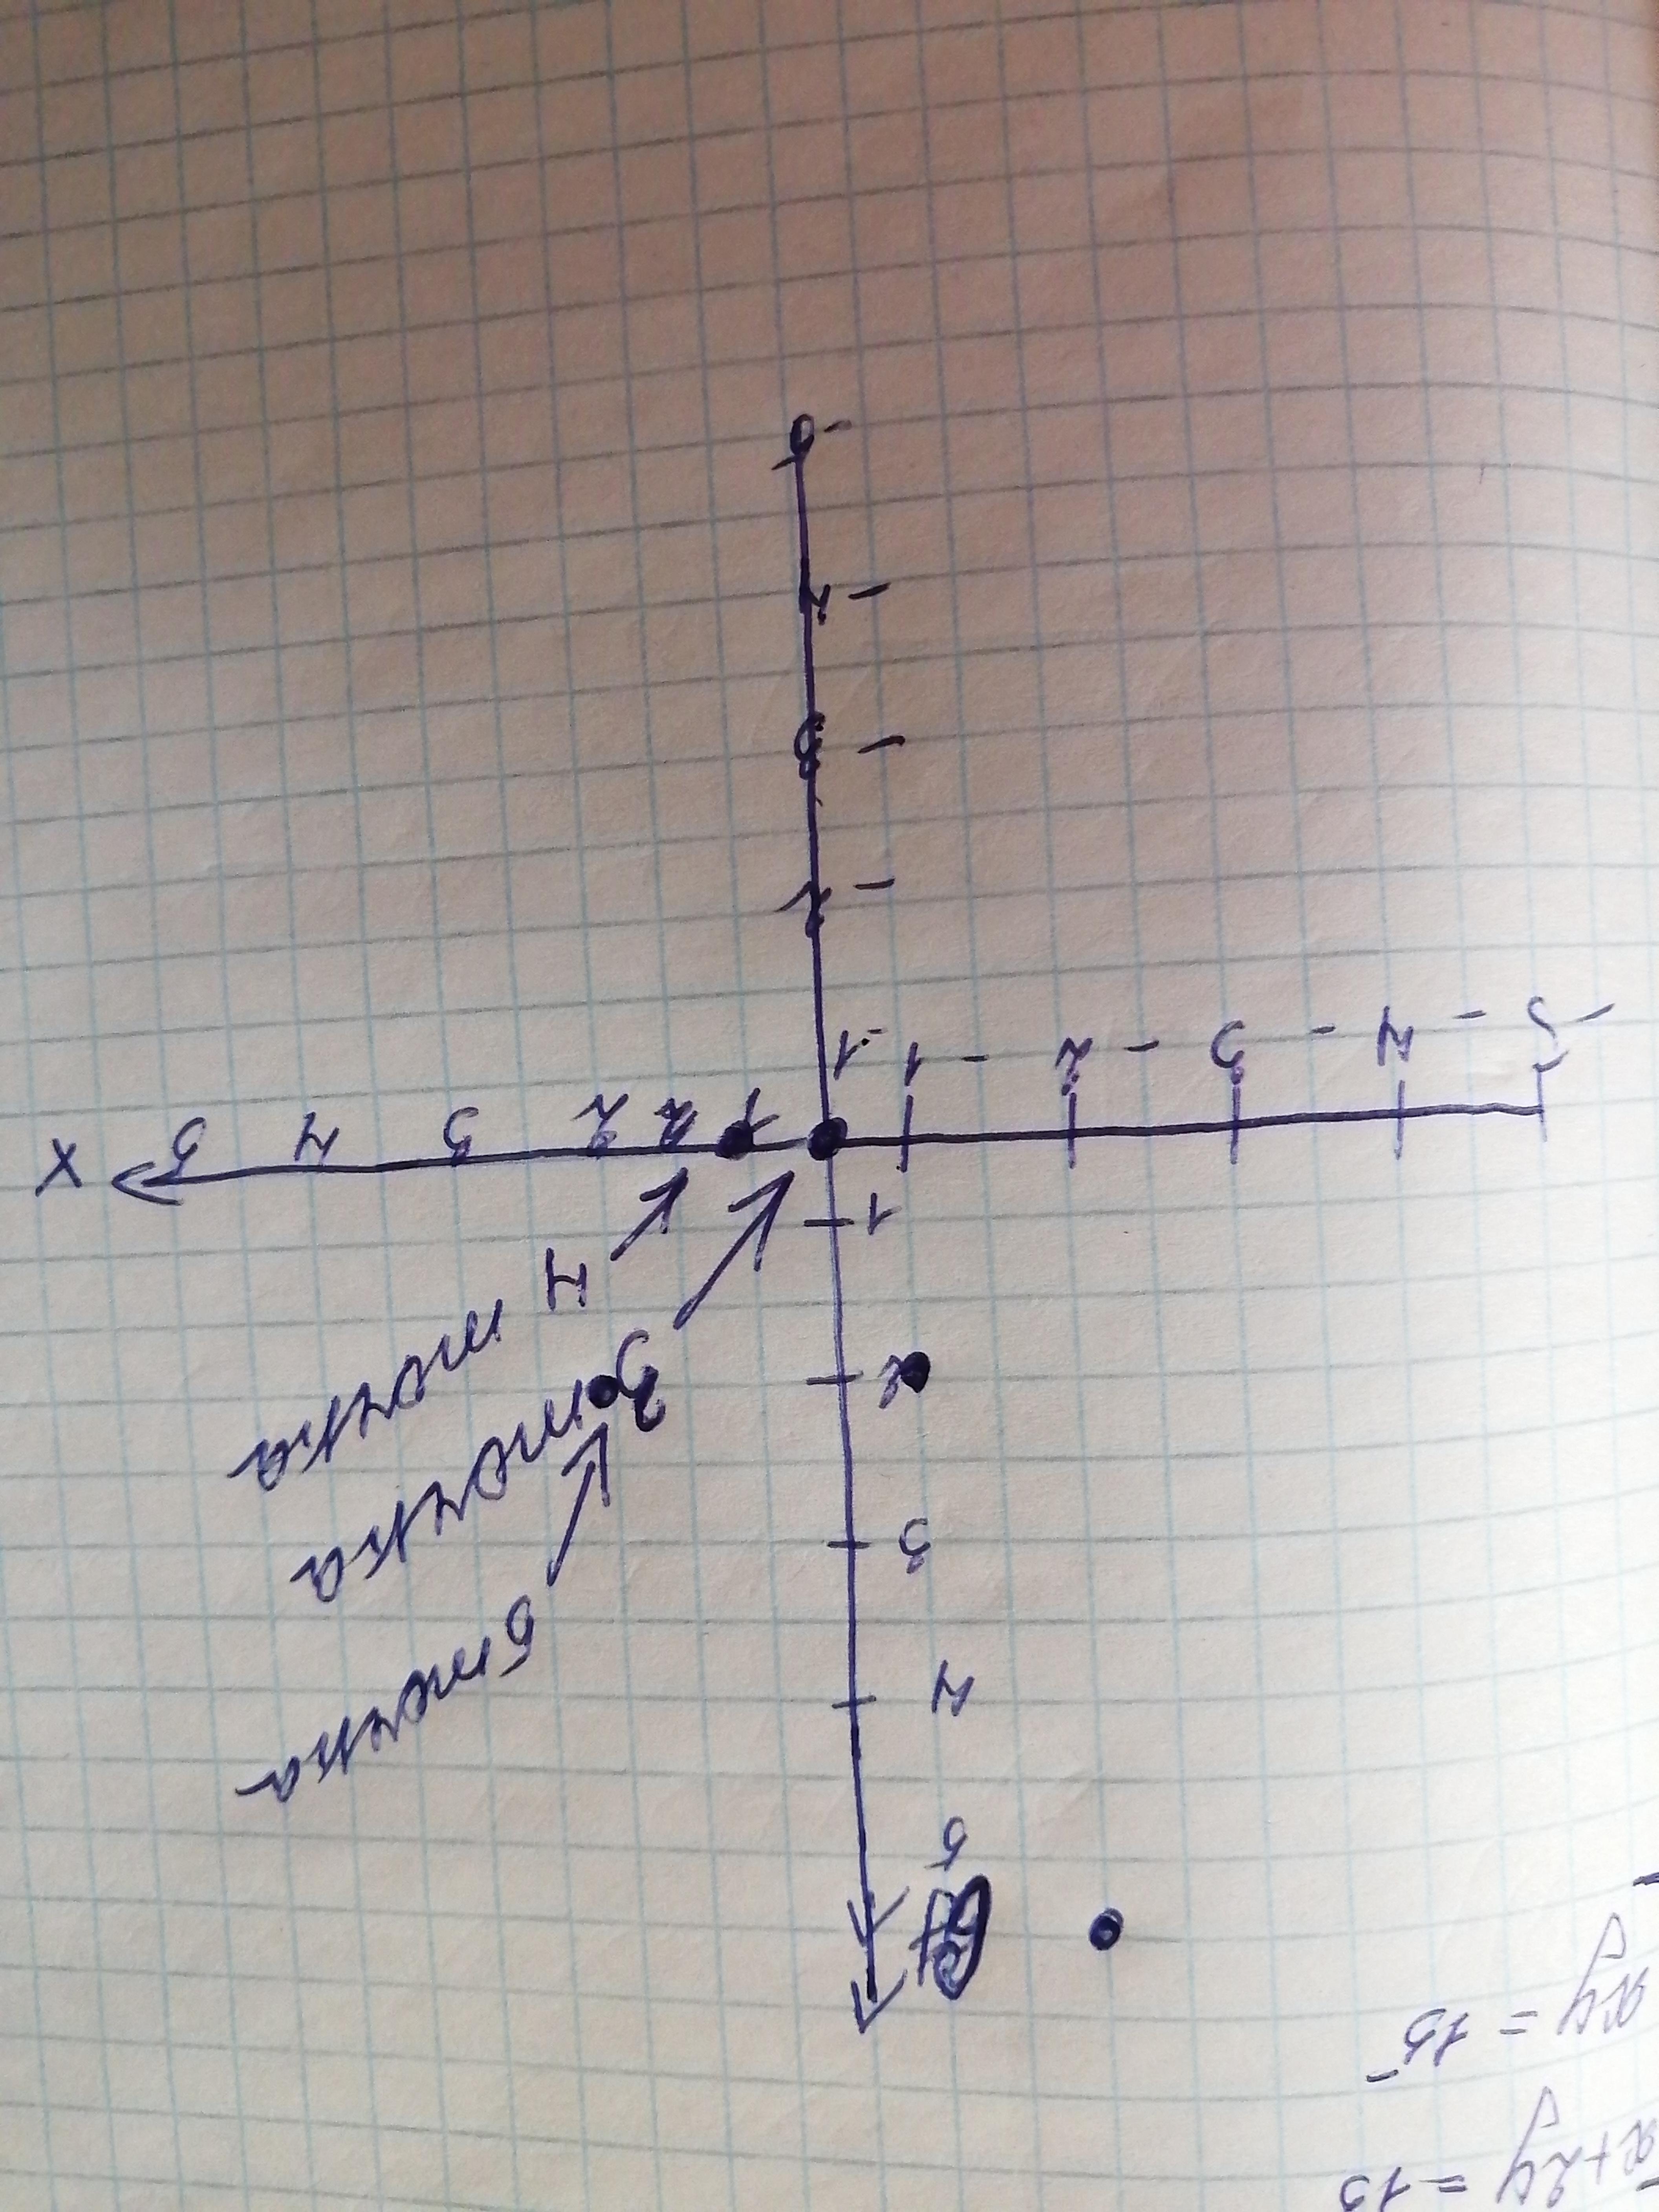 x+2y = 13
xy = 15
y
5
4
5 точка
3
3 точка
2
4 точка
1
-5 -4 -3 -2 -1 1 2 3 4 5 x
-1
-2
-3
-4
-5